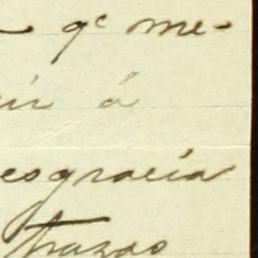 qᵉ me-
ir á
esgracia
trazos